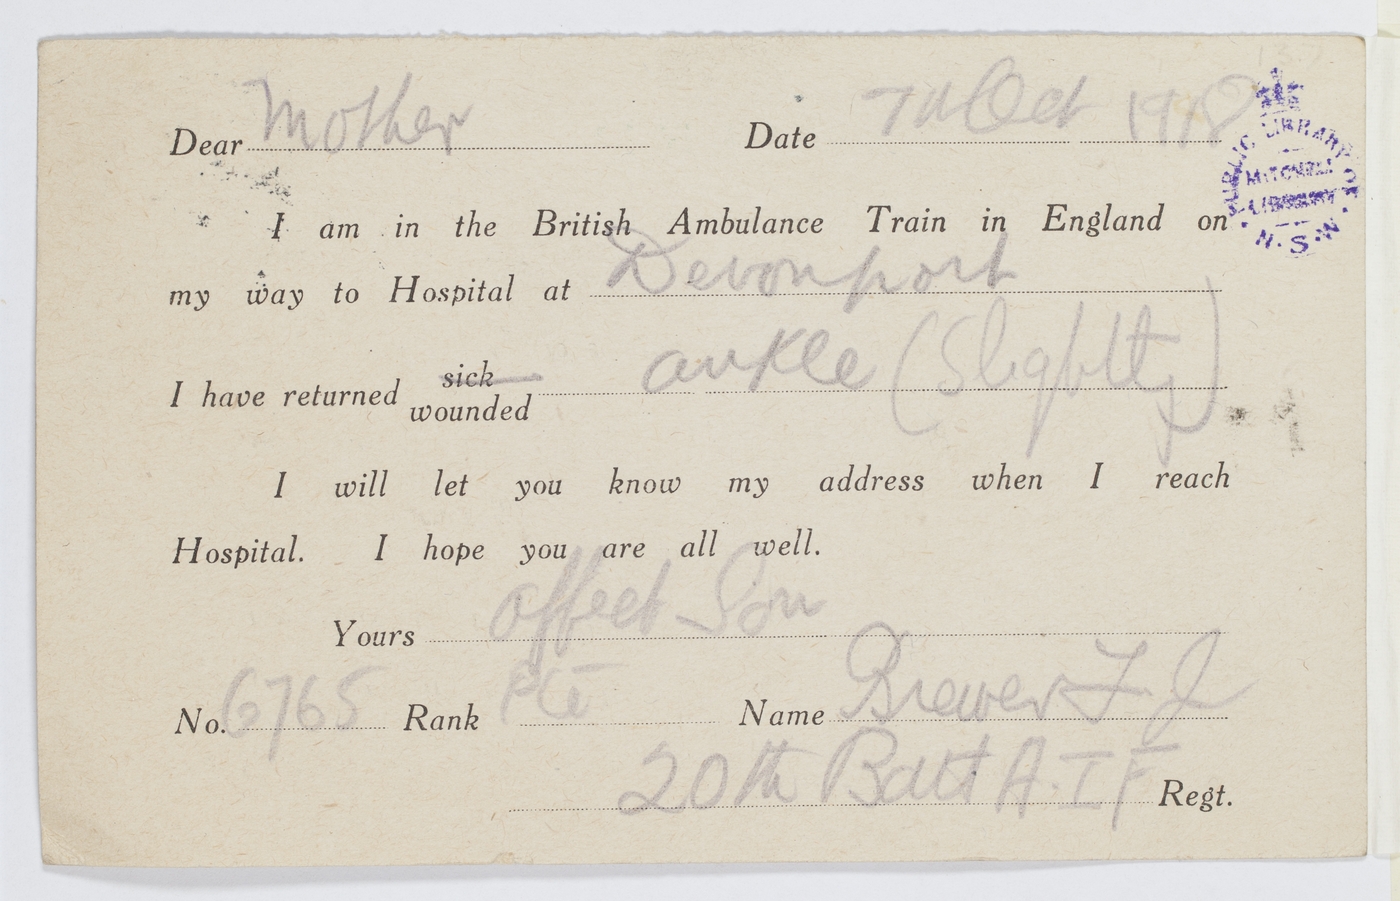 Dear Mother Date 7th Oct 1918
I am in the British Ambulance Train in England on
my way to Hospital at Devonport
I have returned sick wounded ankle (Slightly)
I will let you know my address when I reach
Hospital. I hope you are all well.
Yours affect Son
No. 6765 Rank Pte Name Brewer F J
20th Batt A.I F Regt.
PUBLIC LIBRARY OF N.S.W.
MITCHELL
LIBRARY